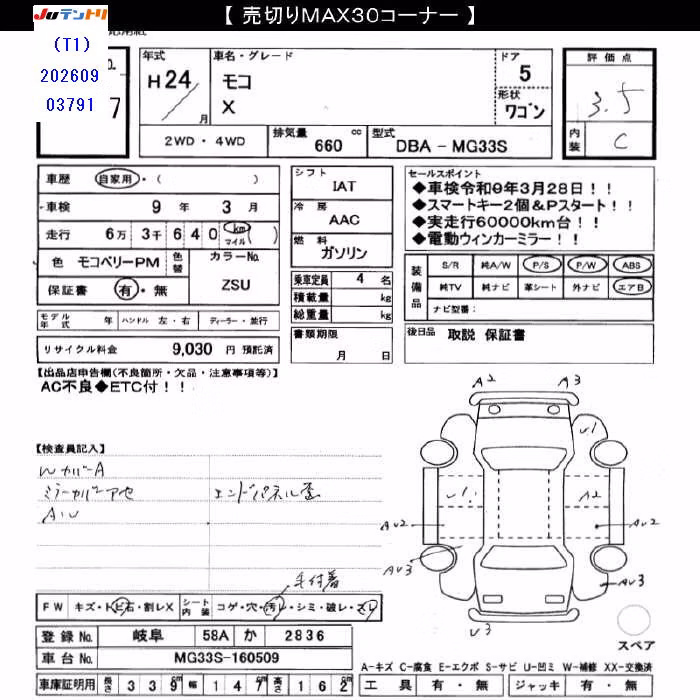 【 売切りMAX30コーナー 】
JUテントリ
(T1)
202609
03791
7
年式
H24
月
車名・グレード
モコ
X
ドア
5
形状
ワゴン
評価点
3.5
内装
C
2WD・4WD
排気量
660
cc
型式
DBA－MG33S
車歴
自家用・(　　)
車検
9 年 3 月
走行
6万 3千 6 4 0 (km マイル)
色
モコベリーPM
色替
カラーNo.
ZSU
保証書
有・無
シフト
IAT
冷房
AAC
燃料
ガソリン
乗車定員
4 名
積載量
kg
総重量
kg
セールスポイント
◆車検令和9年3月28日！！
◆スマートキー2個＆Pスタート！！
◆実走行60000km台！！
◆電動ウィンカーミラー！！
装備品
S/R 純A/W P/S P/W ABS
純TV 純ナビ 革シート 外ナビ エアB
ナビ型番:
モデル年式
年
ハンドル 左・右
ディーラー・並行
書類期限
月 日
後日品
取説 保証書
リサイクル料金
9,030 円 預託済
【出品店申告欄(不良箇所・欠品・注意事項等)】
AC不良◆ETC付！！
【検査員記入】
WカバーA
ミラーカバーアセ
AU
エンドパネル歪
毛付着
A2
A3
U1
U1
A2
AU2
AU2
AU3
AU3
U3
スペア
FW
キズ・トビ石・割レX
シート内装
コゲ・穴・汚レ・シミ・破レ・スレ
登録No.
岐阜 58A か 2836
車台No.
MG33S-160509
車庫証明用
長さ 339 cm 幅 147 cm 高さ 162 cm
A−キズ C−腐食 E−エクボ S−サビ U−凹ミ W−補修 XX−交換済
工具 有・無
ジャッキ 有・無